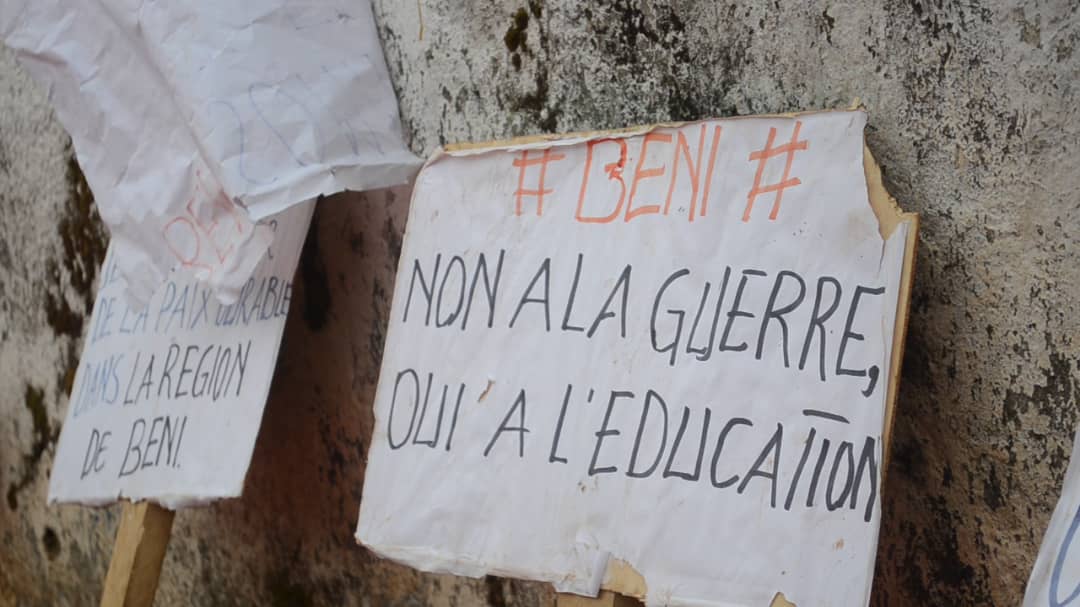 DE LA PAIX DURABLE
DANS LA REGION
DE BENI.
# BENI #
NON A LA GUERRE,
OUI A L'EDUCATION